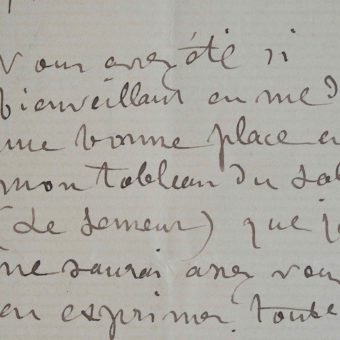 Vous avez été si
bienveillant en me d
une bonne place a
mon tableau du sal
(Le Semeur) que je
ne saurai assez vous
en exprimer toute